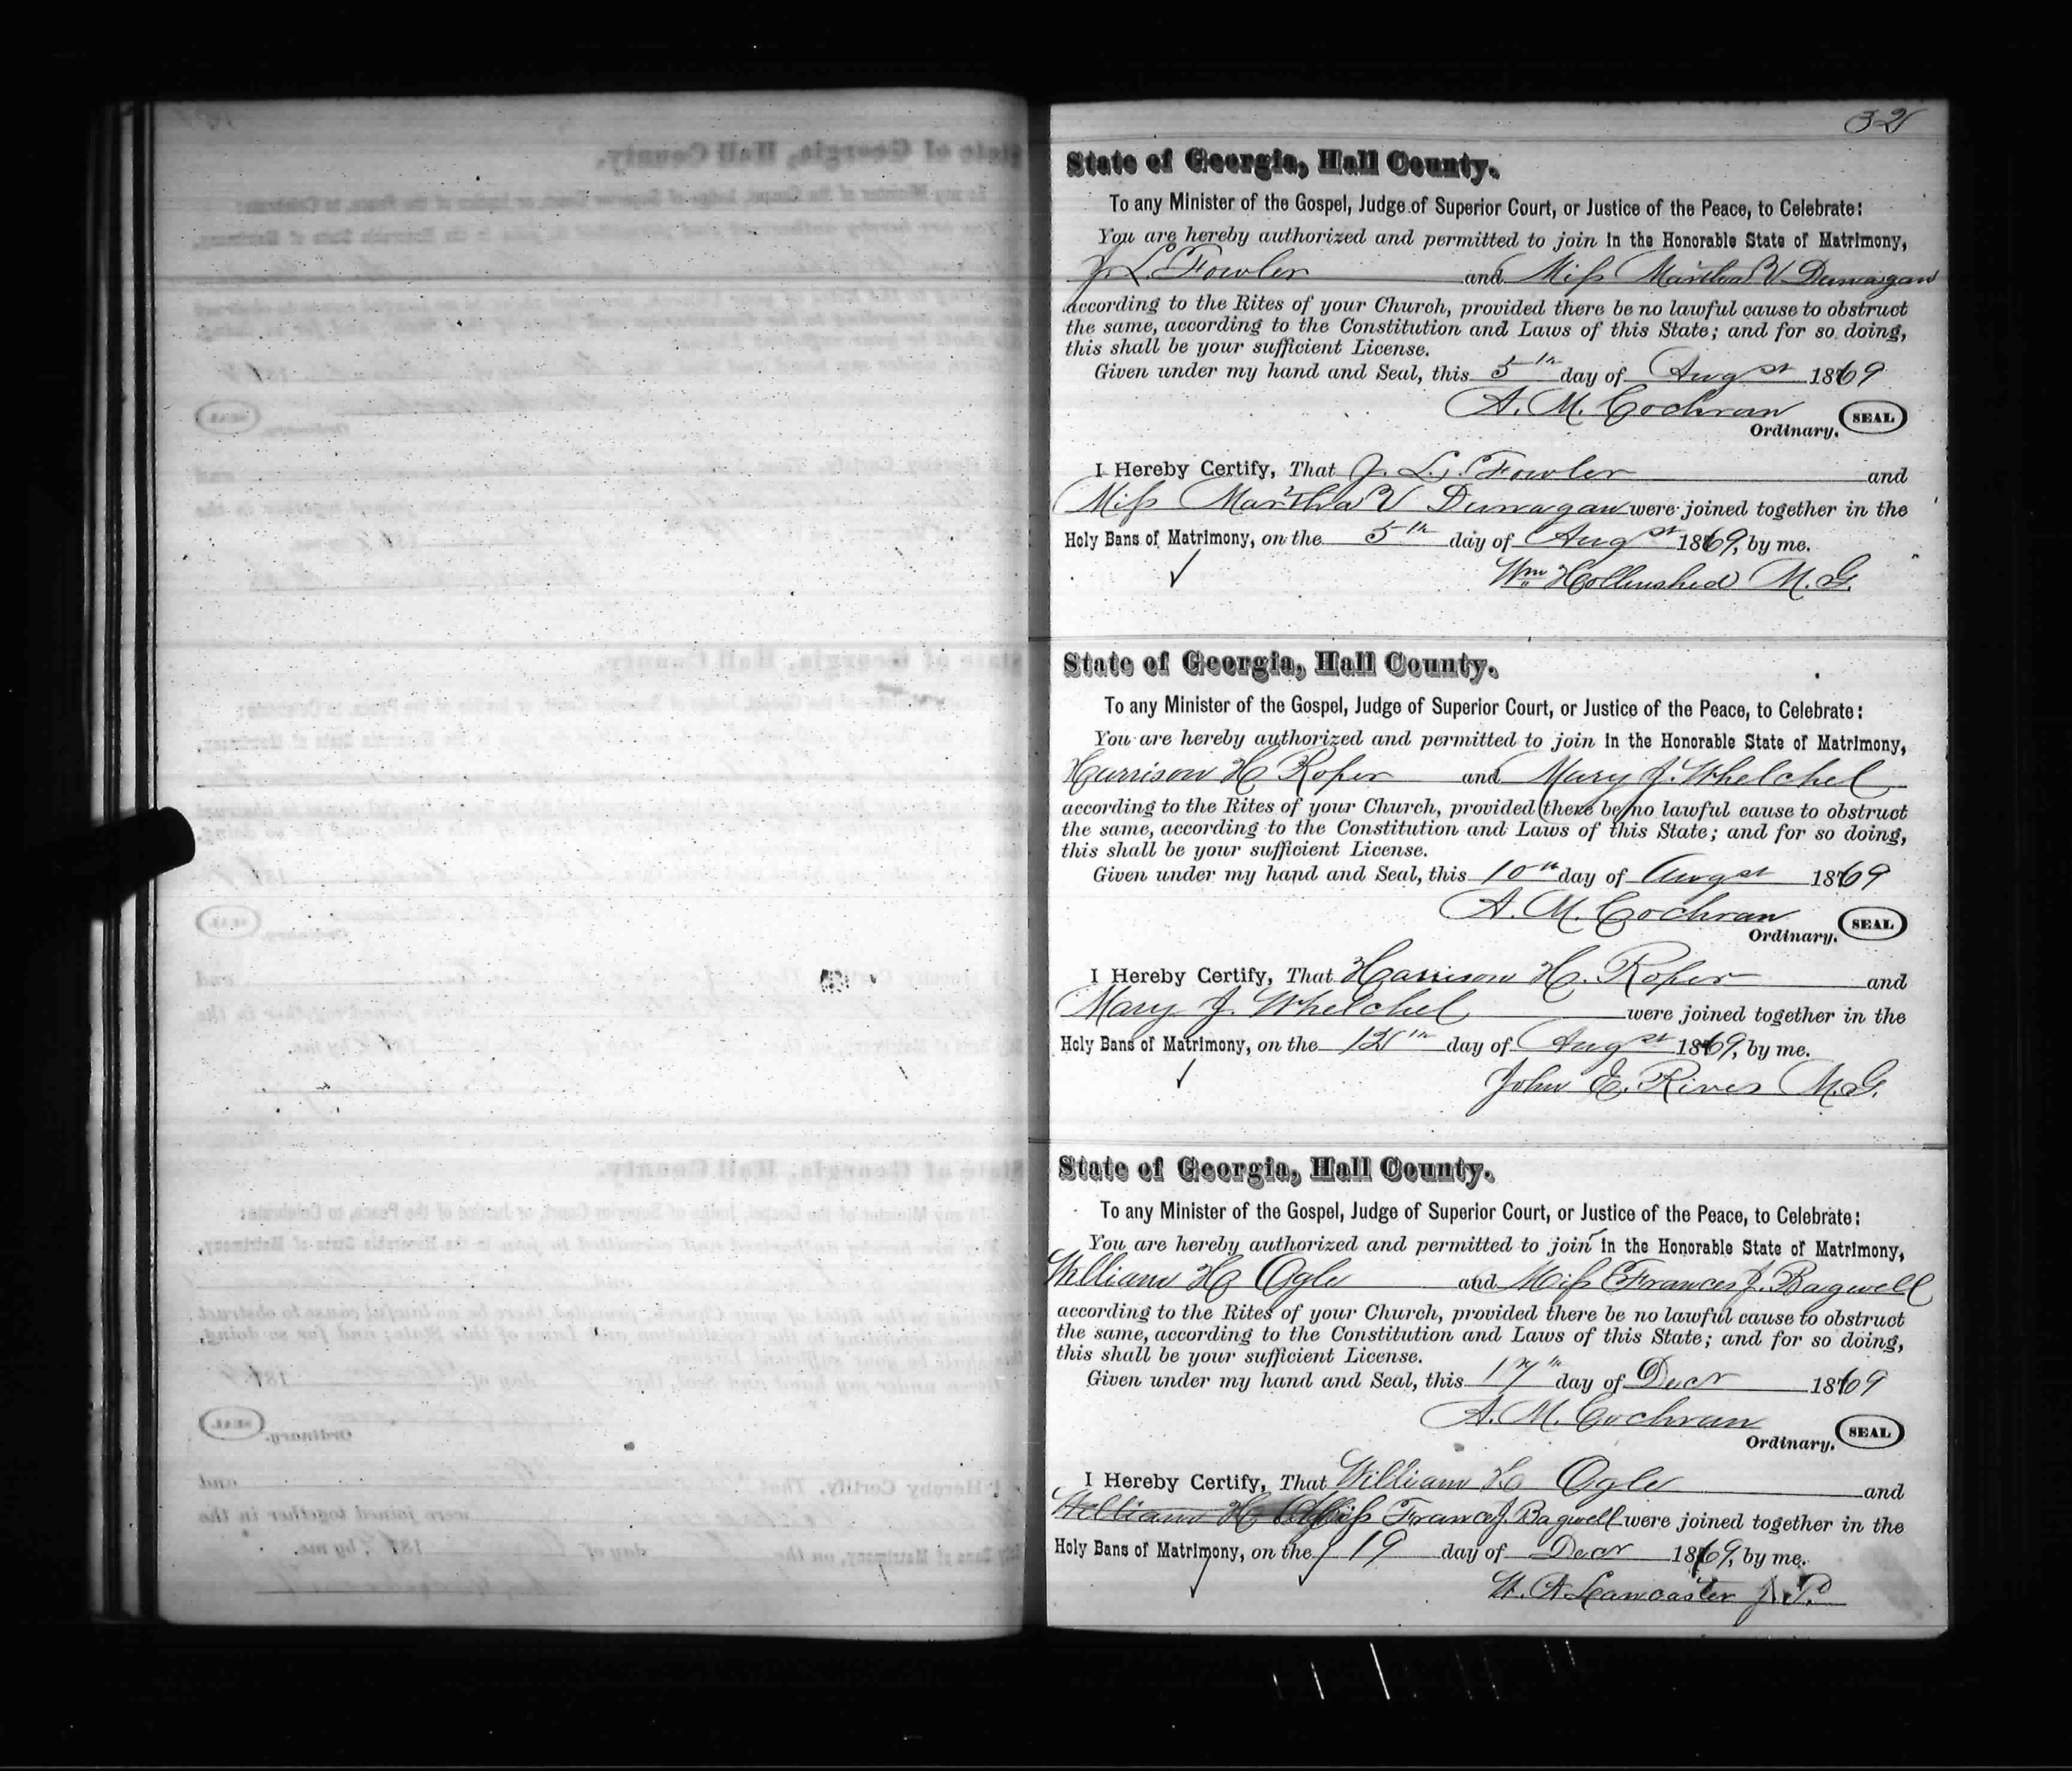 32
State of Georgia, Hall County.
To any Minister of the Gospel, Judge of Superior Court, or Justice of the Peace, to Celebrate:
You are hereby authorized and permitted to join in the Honorable State of Matrimony,
J. L. Fowler and Miss Martha V Dunnagan
according to the Rites of your Church, provided there be no lawful cause to obstruct
the same, according to the Constitution and Laws of this State; and for so doing,
this shall be your sufficient License.
Given under my hand and Seal, this 5th day of Augst 1869
A. M. Cochran SEAL
Ordinary.
I Hereby Certify, That J. L. Fowler and
Miss Martha V Dunnagan were joined together in the
Holy Bans of Matrimony, on the 5th day of Augst 1869, by me.
Wm Hollinshed M. G.
State of Georgia, Hall County.
To any Minister of the Gospel, Judge of Superior Court, or Justice of the Peace, to Celebrate:
You are hereby authorized and permitted to join in the Honorable State of Matrimony,
Harrison H Roper and Mary J. Whelchel
according to the Rites of your Church, provided there be no lawful cause to obstruct
the same, according to the Constitution and Laws of this State; and for so doing,
this shall be your sufficient License.
Given under my hand and Seal, this 10th day of Augst 1869
A. M. Cochran SEAL
Ordinary.
I Hereby Certify, That Harrison H. Roper and
Mary J. Whelchel were joined together in the
Holy Bans of Matrimony, on the 12th day of Augst 1869, by me.
John E. Rives M. G.
State of Georgia, Hall County.
To any Minister of the Gospel, Judge of Superior Court, or Justice of the Peace, to Celebrate:
You are hereby authorized and permitted to join in the Honorable State of Matrimony,
William H Ogle and Miss Frances J. Bagwell
according to the Rites of your Church, provided there be no lawful cause to obstruct
the same, according to the Constitution and Laws of this State; and for so doing,
this shall be your sufficient License.
Given under my hand and Seal, this 17th day of Decr 1869
A. M. Cochran SEAL
Ordinary.
I Hereby Certify, That William H Ogle and
William H Miss Frances J. Bagwell were joined together in the
Holy Bans of Matrimony, on the 19 day of Decr 1869, by me.
W. A. Lancaster J. P.